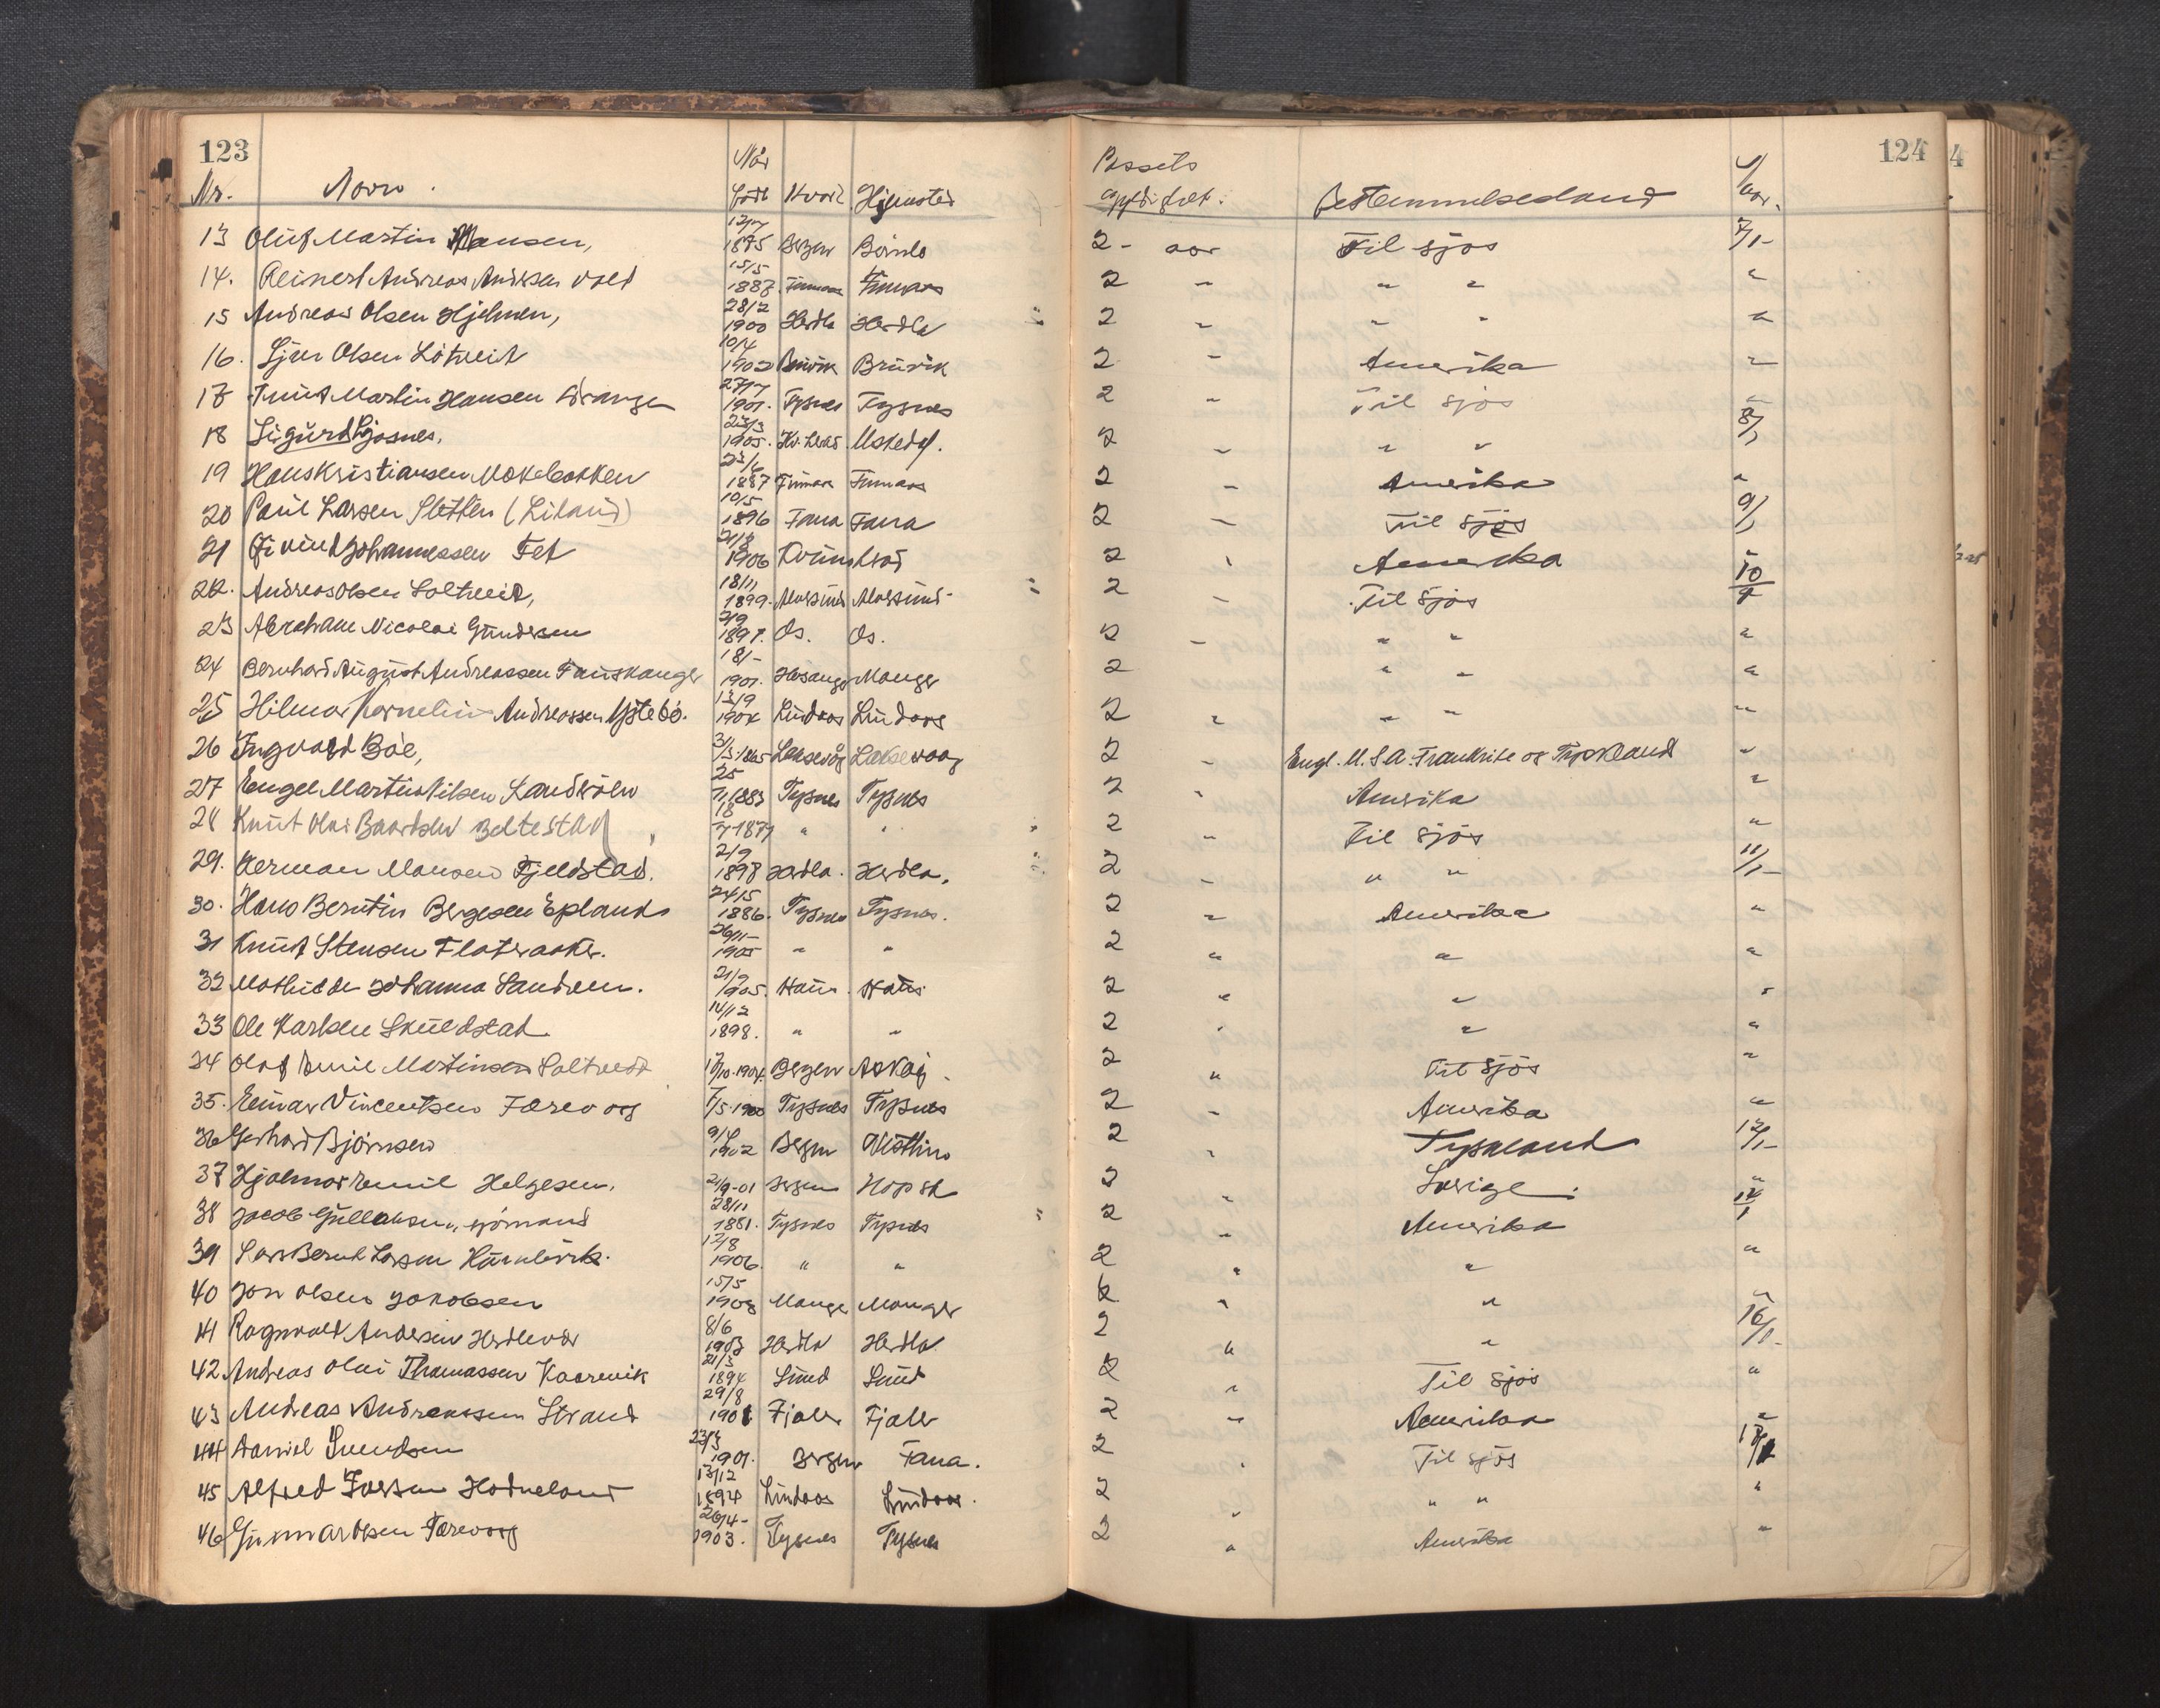 123 124 4
Når Passets
Nr. Navn. født Hvor. Hjemsted gyldighet: Bestemmelsesland
13 Oluf Martin Hansen, 12/7 1875 Bergen Bömlo 2 - aar Til sjøs 7/1-
14. Reinert Andreas Andersen Vold 15/5 1887 Fitmaas 2 " " " "
15 Andreas Olsen Hjelmen, 28/2 1900 Herdla Herdla 2 " " " "
16. Olsen 10/4 1902 Bruvik Bruvik 2 " Amerika "
17 Knut Martin Hansen 27/7 1901. Tysnes Tysnes 2 " Til sjøs "
18 Sigurd 23/3 1905. 2 " " " 8/1
19 Hans Kristiansen 1887 2 " Amerika "
20 Paul Larsen Sletten (Liland) 10/5 1896 Fana Fana 2 " Til sjøs 9/1
21 Eivind Johannessen Fet 1906 Kvinnherad 2 " Amerika "
22. Andreas Olsen Soltveit, 18/11 1899. 2 " Til sjøs 10/1
23 Abraham Nicolai Gundersen 2/9 1897. Os. Os. 2 " " " "
24 Bernhard August Andreassen Fauskanger 18/- 1901. Manger 2 " " "
25 Hilmar Kornelius Andreassen Ystebö. 13/9 1904 Lindaas Lindaas 2 " " " "
26 Ingvald Böe, 3/3.1865 Laksevåg Laksevaag 2 " Engl. U.S.A. Frankrike og Tyskland "
27 Engel Martin Nilsen 25/11 1883 Tysnes Tysnes 2 " Amerika "
28 Knut Olai Baardsen Beltestad 18/7 1879 " " 2 " Til sjøs "
29. Herman Monsen Fjeldstad. 2/9 1898 Herdla. Herdla. 2 " " " 11/1-
30. Hans Berntin Bergesen Epland 24/5 1886. Tysnes Tysnes. 2 " Amerika "
31 Knut Stensen Flateraaker. 26/11- 1905 " " 2 " " "
32 Mathilde Johanna Sandven. 21/9 1905. Haus. Haus 2 " " "
33 Ole Karlsen Skulstad 14/12 1898. " " 2 " " "
34 Olaf Emil Martinsen Soltvedt 10.1904. Bergen Askøy. 2 " Til sjøs "
35. Einar Vincentsen Færevaag 7/5.1900 Tysnes Tysnes 2 " Amerika "
36 Gerhard Björnsen 9/4 1902 Bergen 2 " Tyskland 12/1-
37 Hjalmar Emil Helgesen. 21/9-01 Bergen 2 " Sverige. "
38 Jacob Gullaksen, sjömand 28/11 1881. Tysnes Tysnes 2 " Amerika 14/1
39 Lars Bernt Larsen 12/8 1906. " " 2 " " "
40 Jon Olsen Jakobsen 15/5 1903 Manger Manger 2 " " "
41 Ragnvald Andersen Herdlevær 8/6 1903 Herdla Herdla 2 " " 16/1-
42 Andreas Olai Thomassen Kaarevik 21/3 1894 Sund Sund 2 " Til sjøs "
43 Andreas Andreassen Strand 29/8 1901 Fjaler Fjaler 2 " Amerika "
44 Daniel Svendsen 1901. Bergen Fana. 2 " Til sjøs
45 Alfred Larsen Hodneland 13/12 1894 Lindaas Lindaas. 2 " " " "
46 Gunnar Olsen Færevaag 26/4- 1903. Tysnes Tysnes 2 " Amerika "